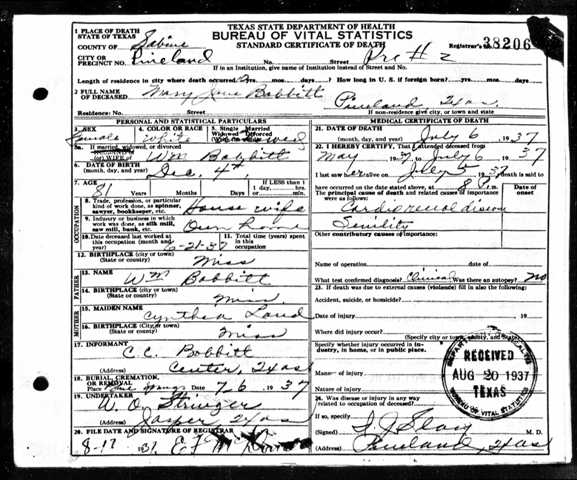 TEXAS STATE DEPARTMENT OF HEALTH
BUREAU OF VITAL STATISTICS
STANDARD CERTIFICATE OF DEATH
1 PLACE OF DEATH
STATE OF TEXAS
COUNTY OF Sabine
CITY OR PRECINCT NO. Pineland No. St. Prct # 2
Registrar's No. 38206
If in an Institution, give name of Institution instead of Street and No.
Length of residence in city where death occurred yrs. mos. ds. How long in U. S. if foreign born? yrs. mos. ds.
2 FULL NAME OF DECEASED Mary Jane Bobbitt
Residence: No. St. Pineland Texas
If non-residence give city or town and state
PERSONAL AND STATISTICAL PARTICULARS
3. SEX Female
4. COLOR OR RACE White
5. Single Married Widowed Divorced Widowed
5a. If married, widowed, or divorced
(or) WIFE of Wm Bobbitt
6. DATE OF BIRTH (month, day, and year) Dec. 4th,
7. AGE 81 Years Months Days IF LESS than 1 day, hrs. min.
OCCUPATION
8. Trade, profession, or particular kind of work done, as spinner, sawyer, bookkeeper, etc. House wife
9. Industry or business in which work was done, as silk mill, saw mill, bank, etc. Own Home
10. Date deceased last worked at this occupation (month and year) 6-21-37
11. Total time (years) spent in this occupation
12. BIRTHPLACE (city or town) (State or country) Miss
FATHER
13. NAME Wm Bobbitt
14. BIRTHPLACE (city or town) (State or country) Miss.
MOTHER
15. MAIDEN NAME Cynthea Land
16. BIRTHPLACE (City or town) (State or country) Miss
17. INFORMANT C. C. Bobbitt
(Address) Center, Texas
18. BURIAL, CREMATION, OR REMOVAL
Place Springs Date 7-6 1937
19. UNDERTAKER W. O. Stringer
(Address) Jasper Texas
20. FILE DATE AND SIGNATURE OF REGISTRAR
8-17 37
MEDICAL CERTIFICATE OF DEATH
21. DATE OF DEATH (month, day, and year) July 6 1937
22. I HEREBY CERTIFY, That I attended deceased from
May 1937 to July 6 1937
I last saw her alive on July 5 1937 death is said to
have occurred on the date stated above, at m.
The principal cause of death and related causes of importance were as follows:
Date of onset
Cardiorenal disease
Senility
Other contributory causes of importance:
Name of operation Date of
What test confirmed diagnosis? Clinical Was there an autopsy? no
23. If death was due to external causes (violence) fill in also the following:
Accident, suicide, or homicide?
Date of injury 19
Where did injury occur?
(Specify city or town, county, and state)
Specify whether injury occurred in industry, in home, or in public place.
Manner of injury
Nature of injury
24. Was disease or injury in any way related to occupation of deceased?
If so, specify
(Signed) M. D.
(Address) Pineland, Texas
RECEIVED
AUG 20 1937
TEXAS
BUREAU OF VITAL STATISTICS